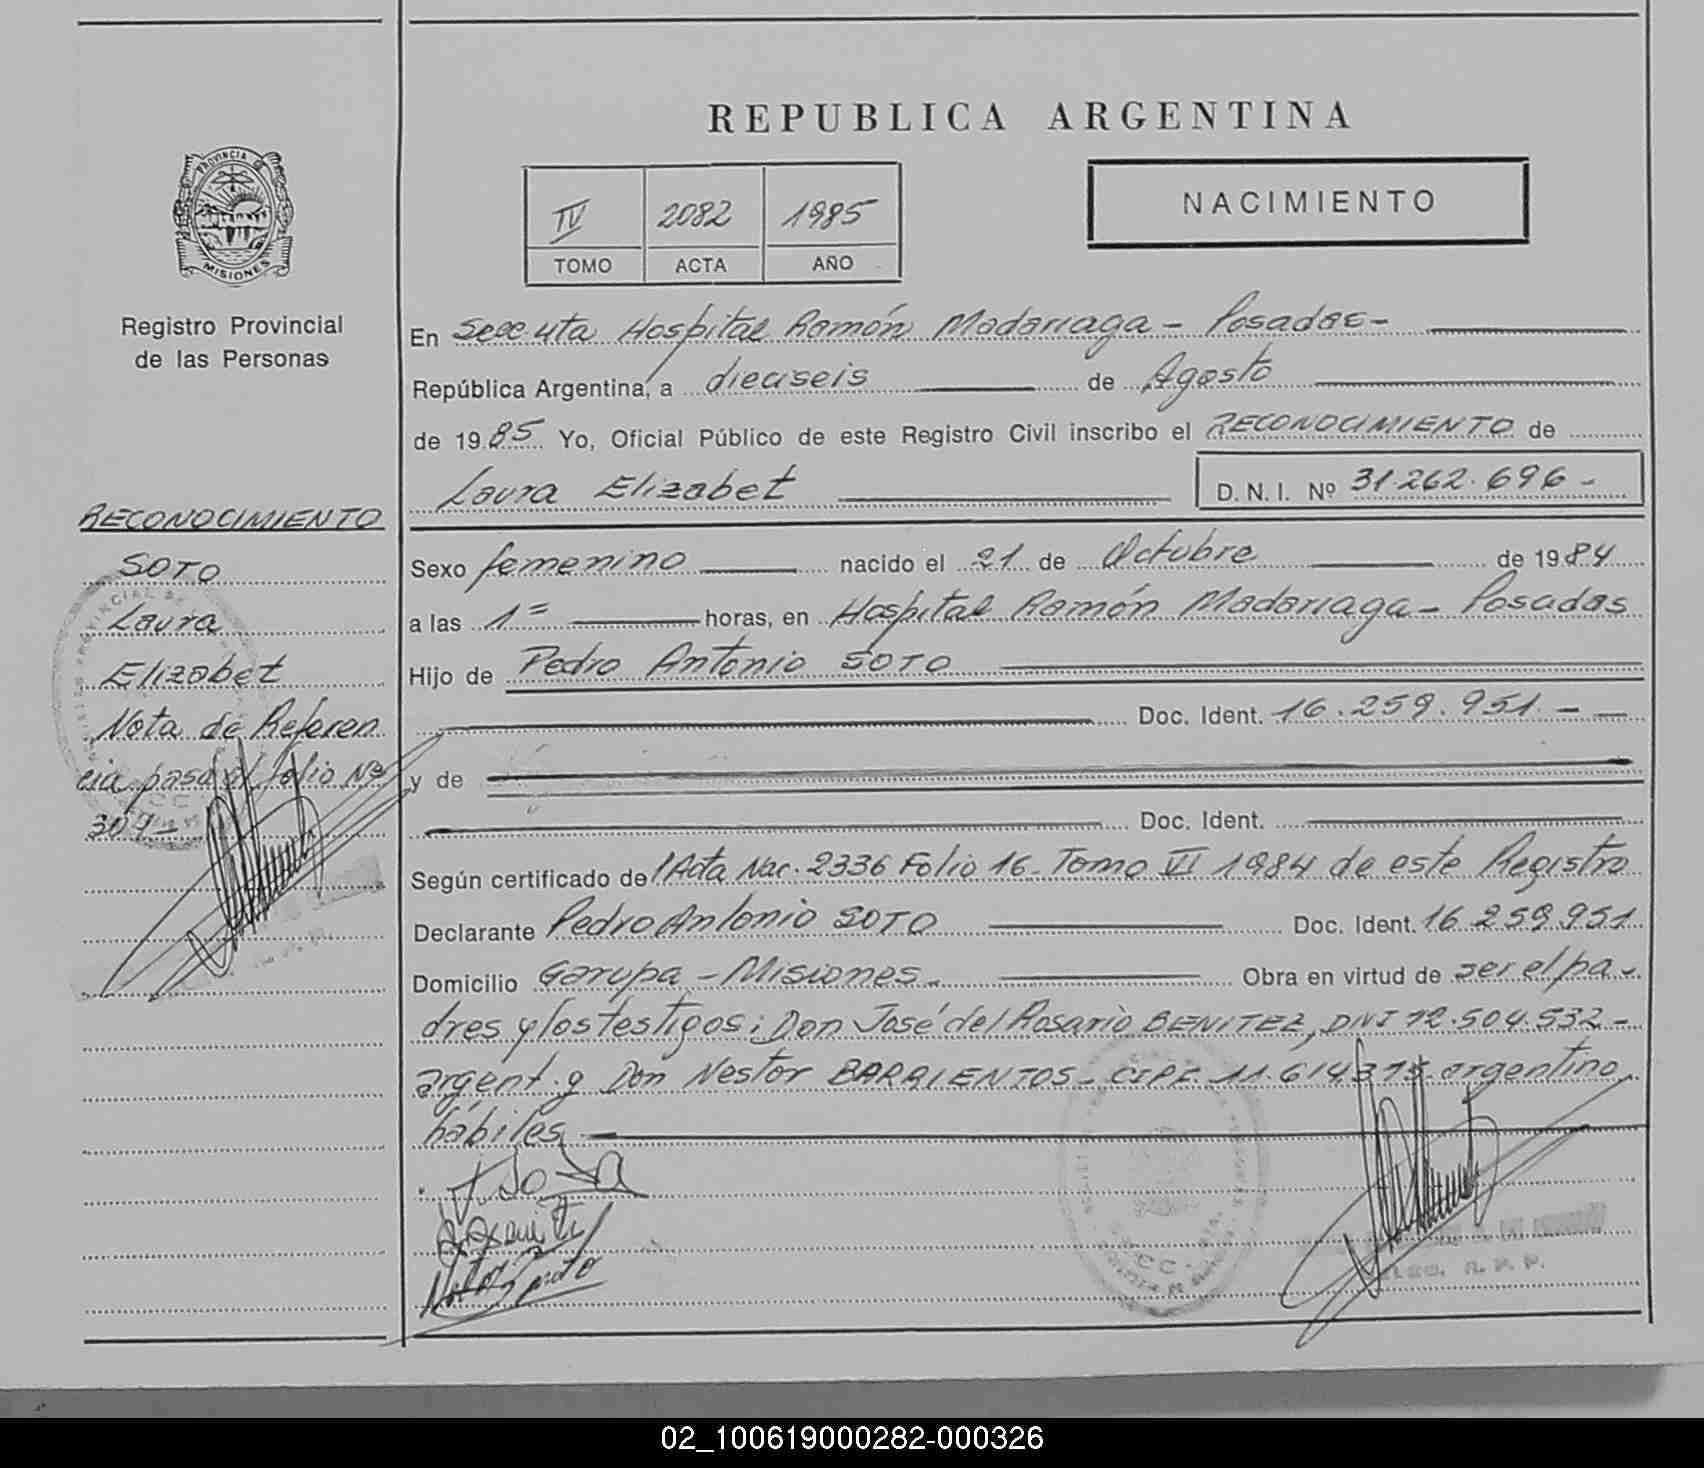 REPUBLICA ARGENTINA
PROVINCIA DE
MISIONES
Registro Provincial
de las Personas
IV 2082 1985
TOMO ACTA AÑO
NACIMIENTO
En Secc 4ta Hospital Ramón Madariaga - Posadas -
República Argentina, a dieciseis de Agosto
de 1985 Yo, Oficial Público de este Registro Civil inscribo el RECONOCIMIENTO de
Laura Elizabet D. N. I. Nº 31.262.696 -
Sexo femenino nacido el 21 de Octubre de 1984
a las 1= horas, en Hospital Ramón Madariaga - Posadas
Hijo de Pedro Antonio SOTO
Doc. Ident. 16.259.951. - -
y de
Doc. Ident.
Según certificado de l'Acta Nac. 2336 Folio 16 - Tomo VI 1984 de este Registro
Declarante Pedro Antonio SOTO Doc. Ident. 16.259.951
Domicilio Garupa - Misiones - Obra en virtud de ser el pa -
dres y los testigos: Don José del Rosario BENITEZ, DNI 12.504.532 -
argent. y Don Nestor BARRIENTOS - CIPF. 11.614.375 argentino
hábiles
RECONOCIMIENTO
SOTO
Laura
Elizabet
Nota de Referen
cia pasa al folio Nº
309 -
02_100619000282-000326